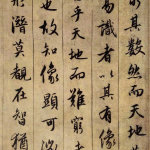 其數然而天地
易識者以其有像
乎天地而難窮者
也故知像顯可
形潛莫覩在智猶